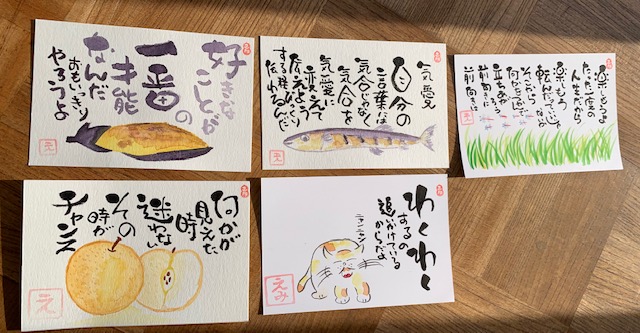 好きな
ことが
一番の
才能
なんだ
おもいっきり
やろうよ
え
気愛
自分の
言葉には
気合じゃなく
気合を
気愛に
変えて
伝えよう
びっくり
する程
伝わるんだ
え
たった一度の
人生だから
楽しもう
そこから
何かを学んで
前向きに
前向きに
え
何かが
見えた
時
迷わない
その
時が
チャンス
え
わくわく
するの
追いかけている
からだよ
ニャンニャン
えみ